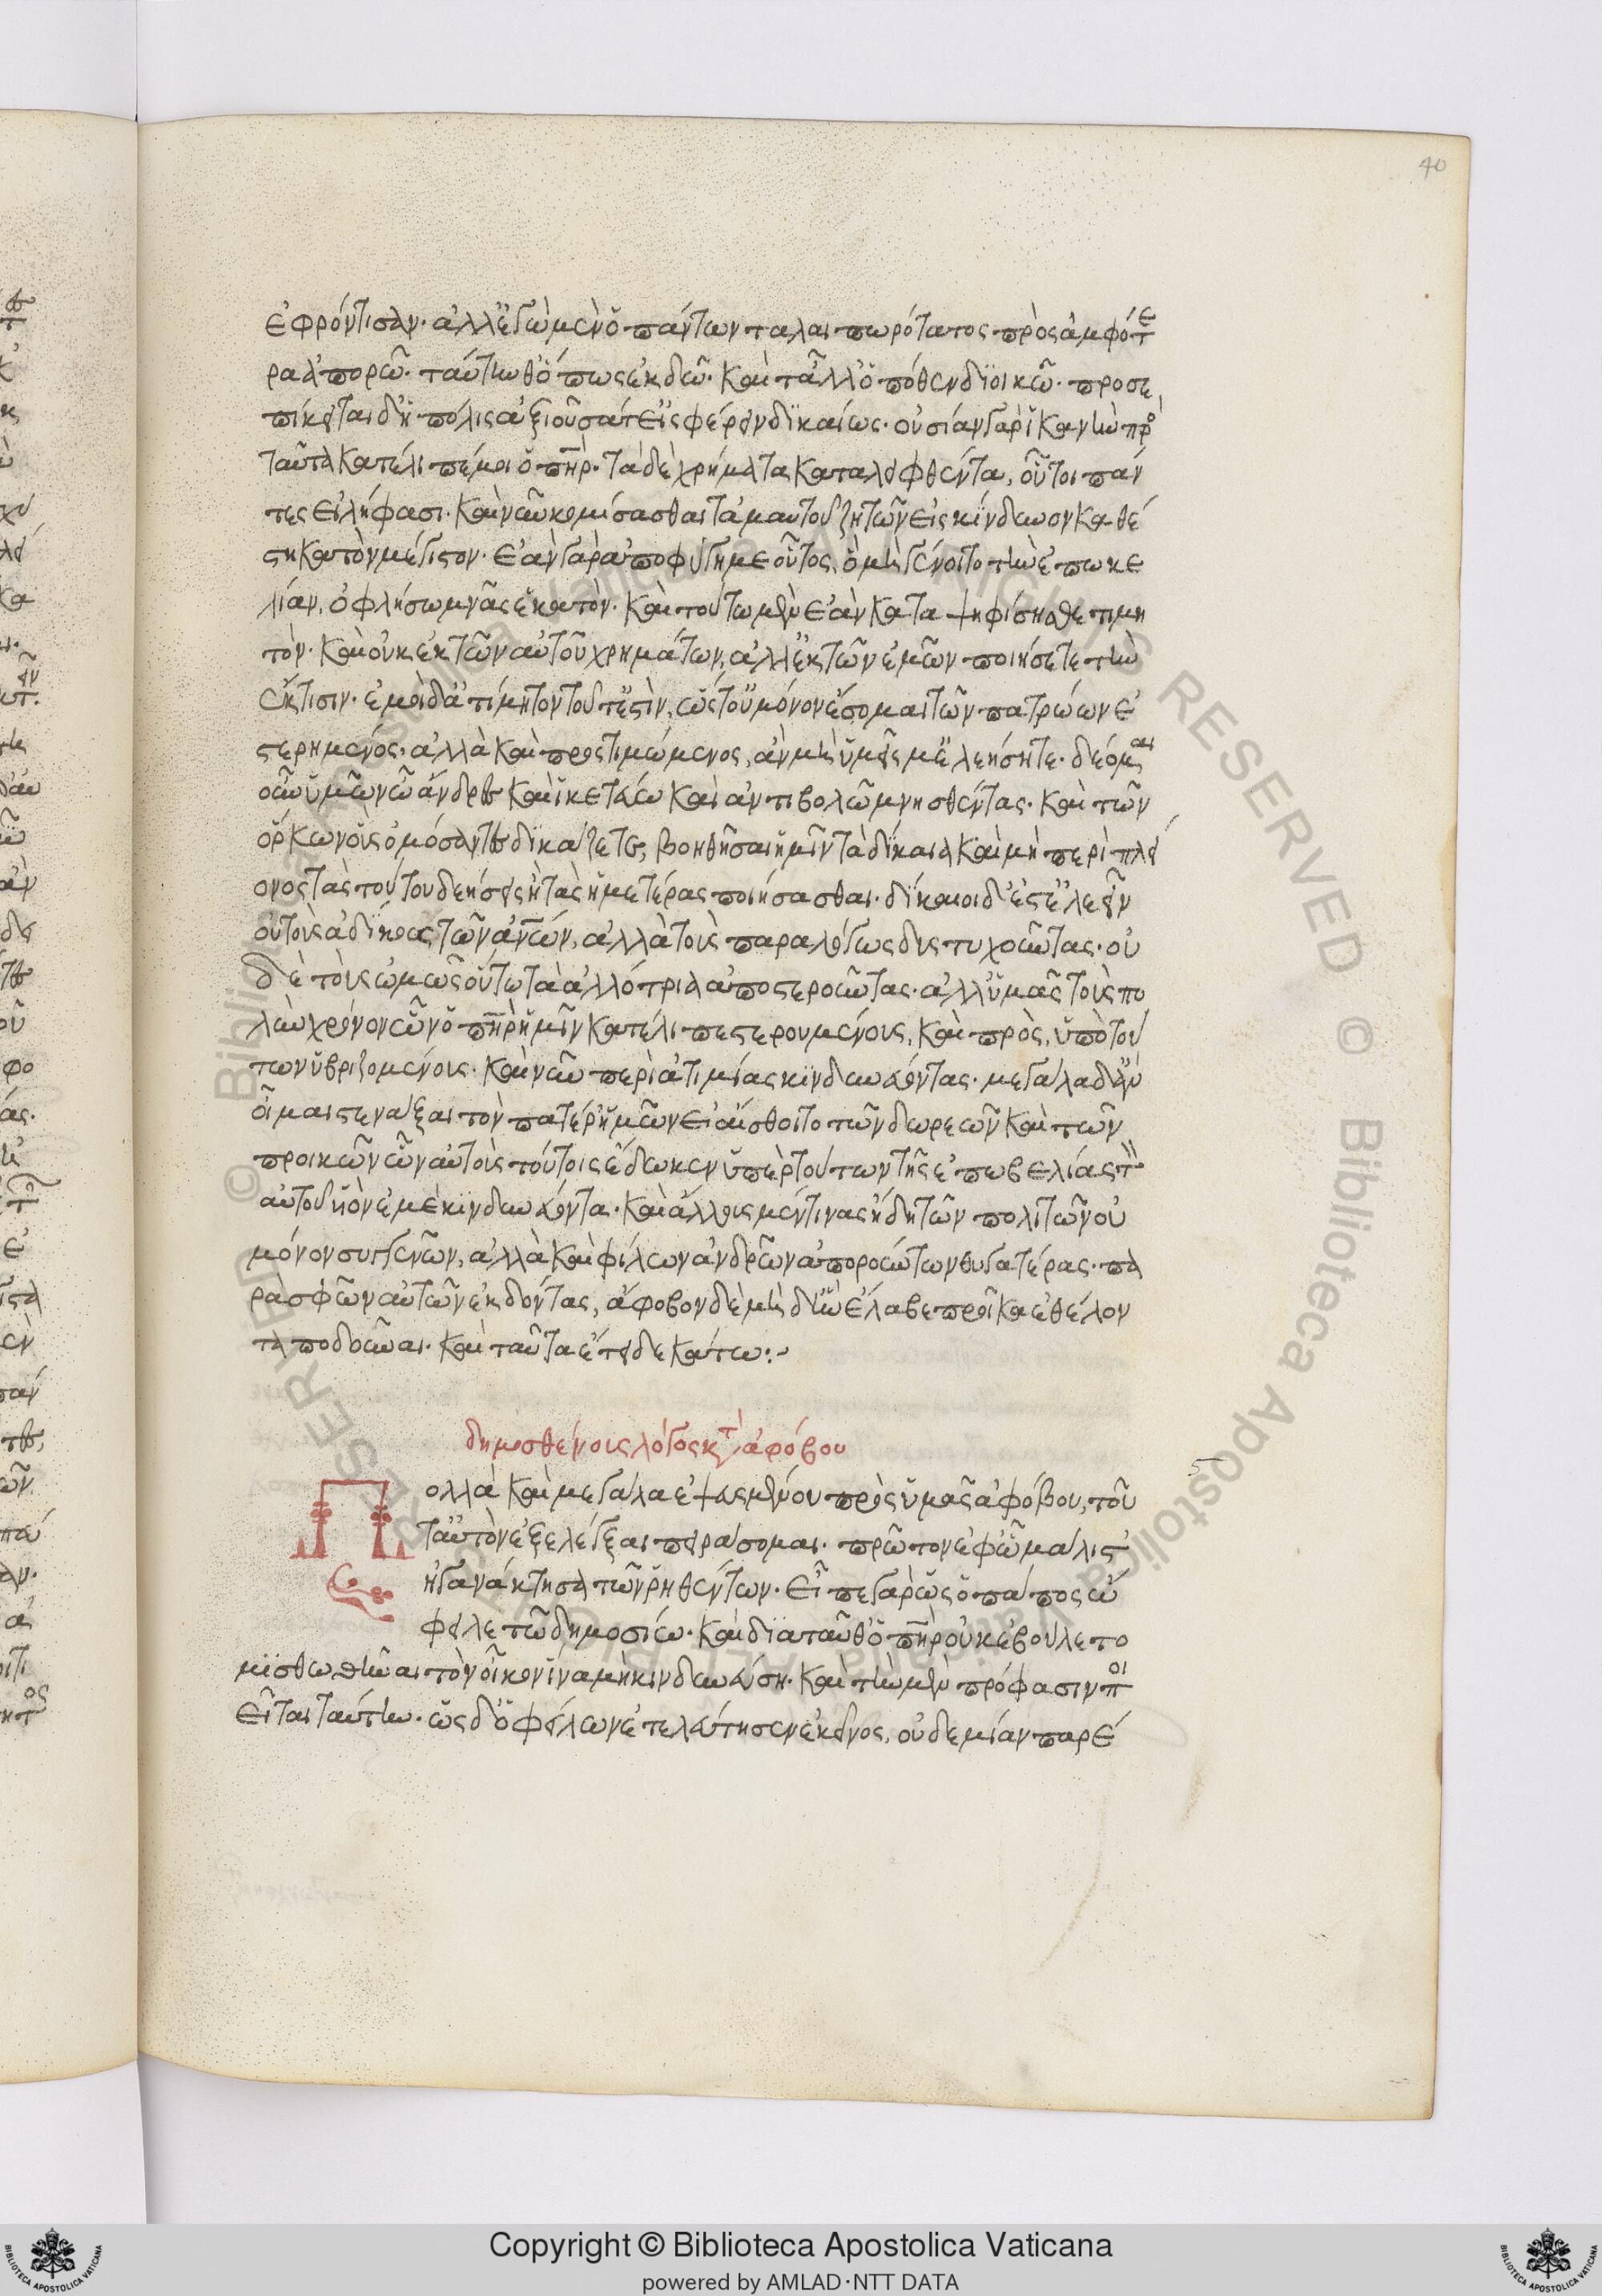 40
ἐφρόντισαν· ἀλλ' ἐγὼ μὲν ὁ πάντων ταλαιπωρότατος πρὸς ἀμφότε
ρα ἀπορῶ· ταύτην θ' ὅπως ἐκδῶ· καὶ τἄλλ' ὁπόθεν διοικῶ· προσε
πίκειται δ' ἡ πόλις ἀξιοῦσά τ' εἰσφέρειν δικαίως· οὐσίαν γὰρ ἱκανὴν πρὸ
ταῦτα κατέλιπέ μοι ὁ πηρ· τὰ δὲ χρήματα καταλειφθέντα, οὗτοι πάν
τες εἰλήφασι· καὶ νῦν κομίσασθαι τἀμαυτοῦ ζητῶν εἰς κίνδυνον καθέ
στηκα τὸν μέγιστον· ἐὰν γὰρ ἀποφύγῃ με οὗτος, ὃ μὴ γένοιτο τὴν ἐπωβε
λίαν, ὀφλήσω μνᾶς ἑκατὸν· καὶ τούτω μὲν ἐὰν καταψηφίσησθε τιμη
τὸν· καὶ οὐκ ἐκ τῶν αὐτοῦ χρημάτων, ἀλλ' ἐκ τῶν ἐμῶν ποιήσεται τὴν
ἔκτισιν· ἐμοὶ δ' ἀτίμητον τοῦτ' ἔστιν, ὥστ' οὐ μόνον ἔσομαι τῶν πατρώων ἐ
στερημένος· ἀλλὰ καὶ προστιμώμενος, ἂν μὴ ὑμεῖς μ' ἐλεήσητε· δέομαι
οὖν ὑμῶν ὦ ἄνδρες καὶ ἱκετεύω καὶ ἀντιβολῶ μνησθέντας· καὶ τῶν
ὅρκων οἷς ὀμόσαντες δικάζετε, βοηθῆσαι ἡμῖν τὰ δίκαια καὶ μὴ περὶ πλεί
ονος τὰς τούτου δεήσεις ἢ τὰς ἡμετέρας ποιήσασθαι· δίκαιοι δ' ἐστ' ἐλεεῖν
οὐ τοὺς ἀδίκους τῶν ανων, ἀλλὰ τοὺς παραλόγως δυστυχοῦντας· οὐ
δὲ τοὺς ὠμῶς οὕτω τὰ ἀλλότρια ἀποστεροῦντας· ἀλλ' ὑμᾶς τοὺς πο
λὺν χρόνον ὧν ὁ πηρ ἡμῖν κατέλιπε στερουμένους, καὶ πρὸς, ὑπὸ τού
των ὑβριζομένους· καὶ νῦν περὶ ἀτιμίας κινδυνεύοντας· μεγάλα δ' ἂν
οἶμαι στενάξαι τὸν πατέρ' ἡμῶν εἰ αἴσθοιτο τῶν δωρεῶν καὶ τῶν
προικῶν ὧν αὐτοῖς τούτοις ἔδωκεν ὑπὲρ τούτων τῆς ἐπωβελίας τὸν
αὐτοῦ υἱὸν ἐμὲ κινδυνεύοντα· καὶ ἄλλους μέν τινας ἤδη τῶν πολιτῶν οὐ
μόνον συγγενῶν, ἀλλὰ καὶ φίλων ἀνδρῶν ἀπορούντων θυγατέρας· πα
ρὰ σφῶν αὐτῶν ἐκδόντας, ἄφοβον δὲ μὴ δ' ἣν ἔλαβε προῖκα ἐθέλον
τα ποδοῦναι· καὶ ταῦτα ἔτει δεκάτω:~
δημοσθένους λόγος κατὰ ἀφόβου
Πολλὰ καὶ μεγάλα ἐψευσμένου πρὸς ὑμᾶς ἀφόβου, τοῦ
τ' αὐτὸν ἐξελέγξαι πειράσομαι· πρῶτον ἐφ' ᾧ μάλιστ'
ἠγανάκτησα τῶν ῥηθέντων· εἶπε γὰρ ὡς ὁ πάπος ὤ
φειλε τῶ δημοσίω· καὶ διὰ ταῦθ' ὁ πηρ οὐκ ἐβούλετο
μισθωθῆναι τὸν οἶκον ἵνα μὴ κινδυνεύση· καὶ τὴν μὲν πρόφασιν ποι
εῖται ταύτην· ὡς δ' ὀφείλων ἐτελεύτησεν ἐκεῖνος, οὐδεμίαν παρέ
Copyright © Biblioteca Apostolica Vaticana
powered by AMLAD·NTT DATA